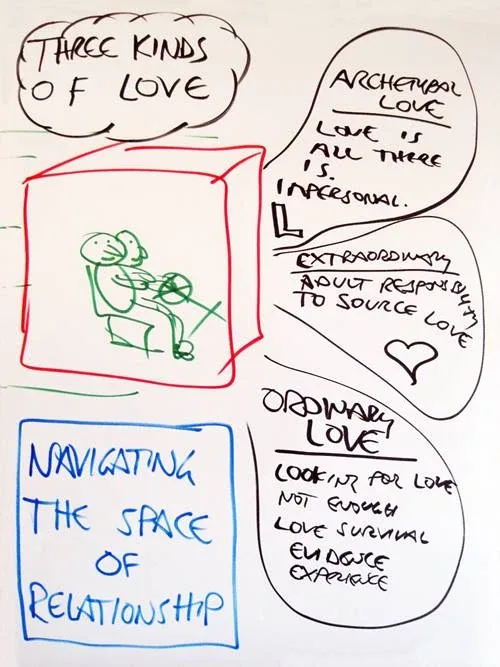 THREE KINDS
OF LOVE
ARCHETYPAL
LOVE
LOVE IS
ALL THERE
IS.
IMPERSONAL.
L
EXTRAORDINARY
ADULT RESPONSIBILITY
TO SOURCE LOVE
ORDINARY
LOVE
LOOKING FOR LOVE
NOT ENOUGH
LOVE SURVIVAL
EVIDENCE
EXPERIENCE
NAVIGATING
THE SPACE
OF
RELATIONSHIP